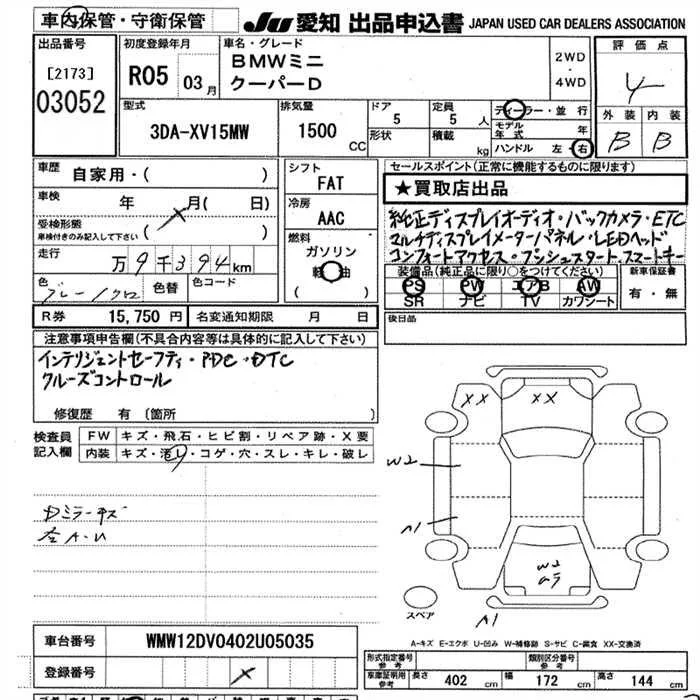 車内保管・守衛保管
JU 愛知 出品申込書 JAPAN USED CAR DEALERS ASSOCIATION
出品番号 初度登録年月 車名・グレード 2WD ・ 4WD 評価点
[2173]
03052
R05 03月
BMWミニ
クーパーD
4
型式 排気量 ドア 定員 ディーラー・並行 外装 内装
3DA-XV15MW 1500 CC 5 5人
形状 積載 kg
モデル年式 年
ハンドル 左・右
B B
車歴 自家用・( )
シフト FAT
セールスポイント(正常に機能するものに限ります)
★買取店出品
車検 年 月( 日)
冷房 AAC
純正ディスプレイオーディオ・バックカメラ・ETC
受検形態
車検付きのみ記入して下さい ( )
マルチディスプレイメーターパネル・LEDヘッド
燃料 ガソリン 軽油 ( )
コンフォートアクセス・プッシュスタート・スマートキー
走行 万9千394km
装備品(純正品に限り○をつけてください)
新車保証書
PS PW エアB AW
SR ナビ TV カワシート
有・無
色 グレー/クロ 色替 色コード
R券 15,750円 名変通知期限 月 日
後日品
注意事項申告欄(不具合内容等は具体的に記入して下さい)
インテリジェントセーフティ・PDC・DTC
クルーズコントロール
修復歴 有(箇所 )
検査員記入欄
FW キズ・飛石・ヒビ割・リペア跡・X要
内装 キズ・汚レ・コゲ・穴・スレ・キレ・破レ
XX XX
W2
A1
Dミラーキズ
左A・U
W2
A1
スペア
A-キズ E-エクボ U-凹み W-補修跡 S-サビ C-腐食 XX-交換済
車台番号 WMW12DV0402U05035
登録番号
形式指定番号 参考 類別区分番号 参考
車庫証明用 参考 長さ 402 cm 幅 172 cm 高さ 144 cm